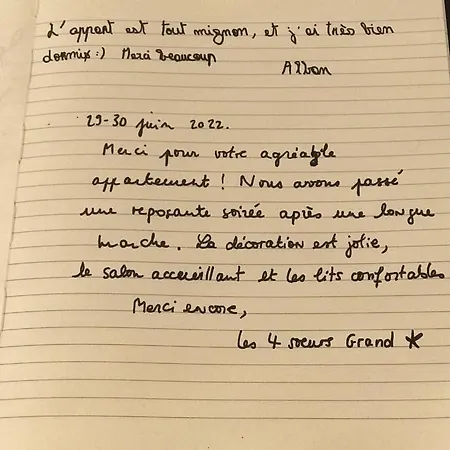 L'appart est tout mignon, et j'ai très bien
dormir :) Merci beaucoup
Alban
29-30 juin 2022.
Merci pour votre agréable
appartement ! Nous avons passé
une reposante soirée après une longue
marche. La décoration est jolie,
le salon accueillant et les lits confortables
Merci encore,
les 4 soeurs Grand ★